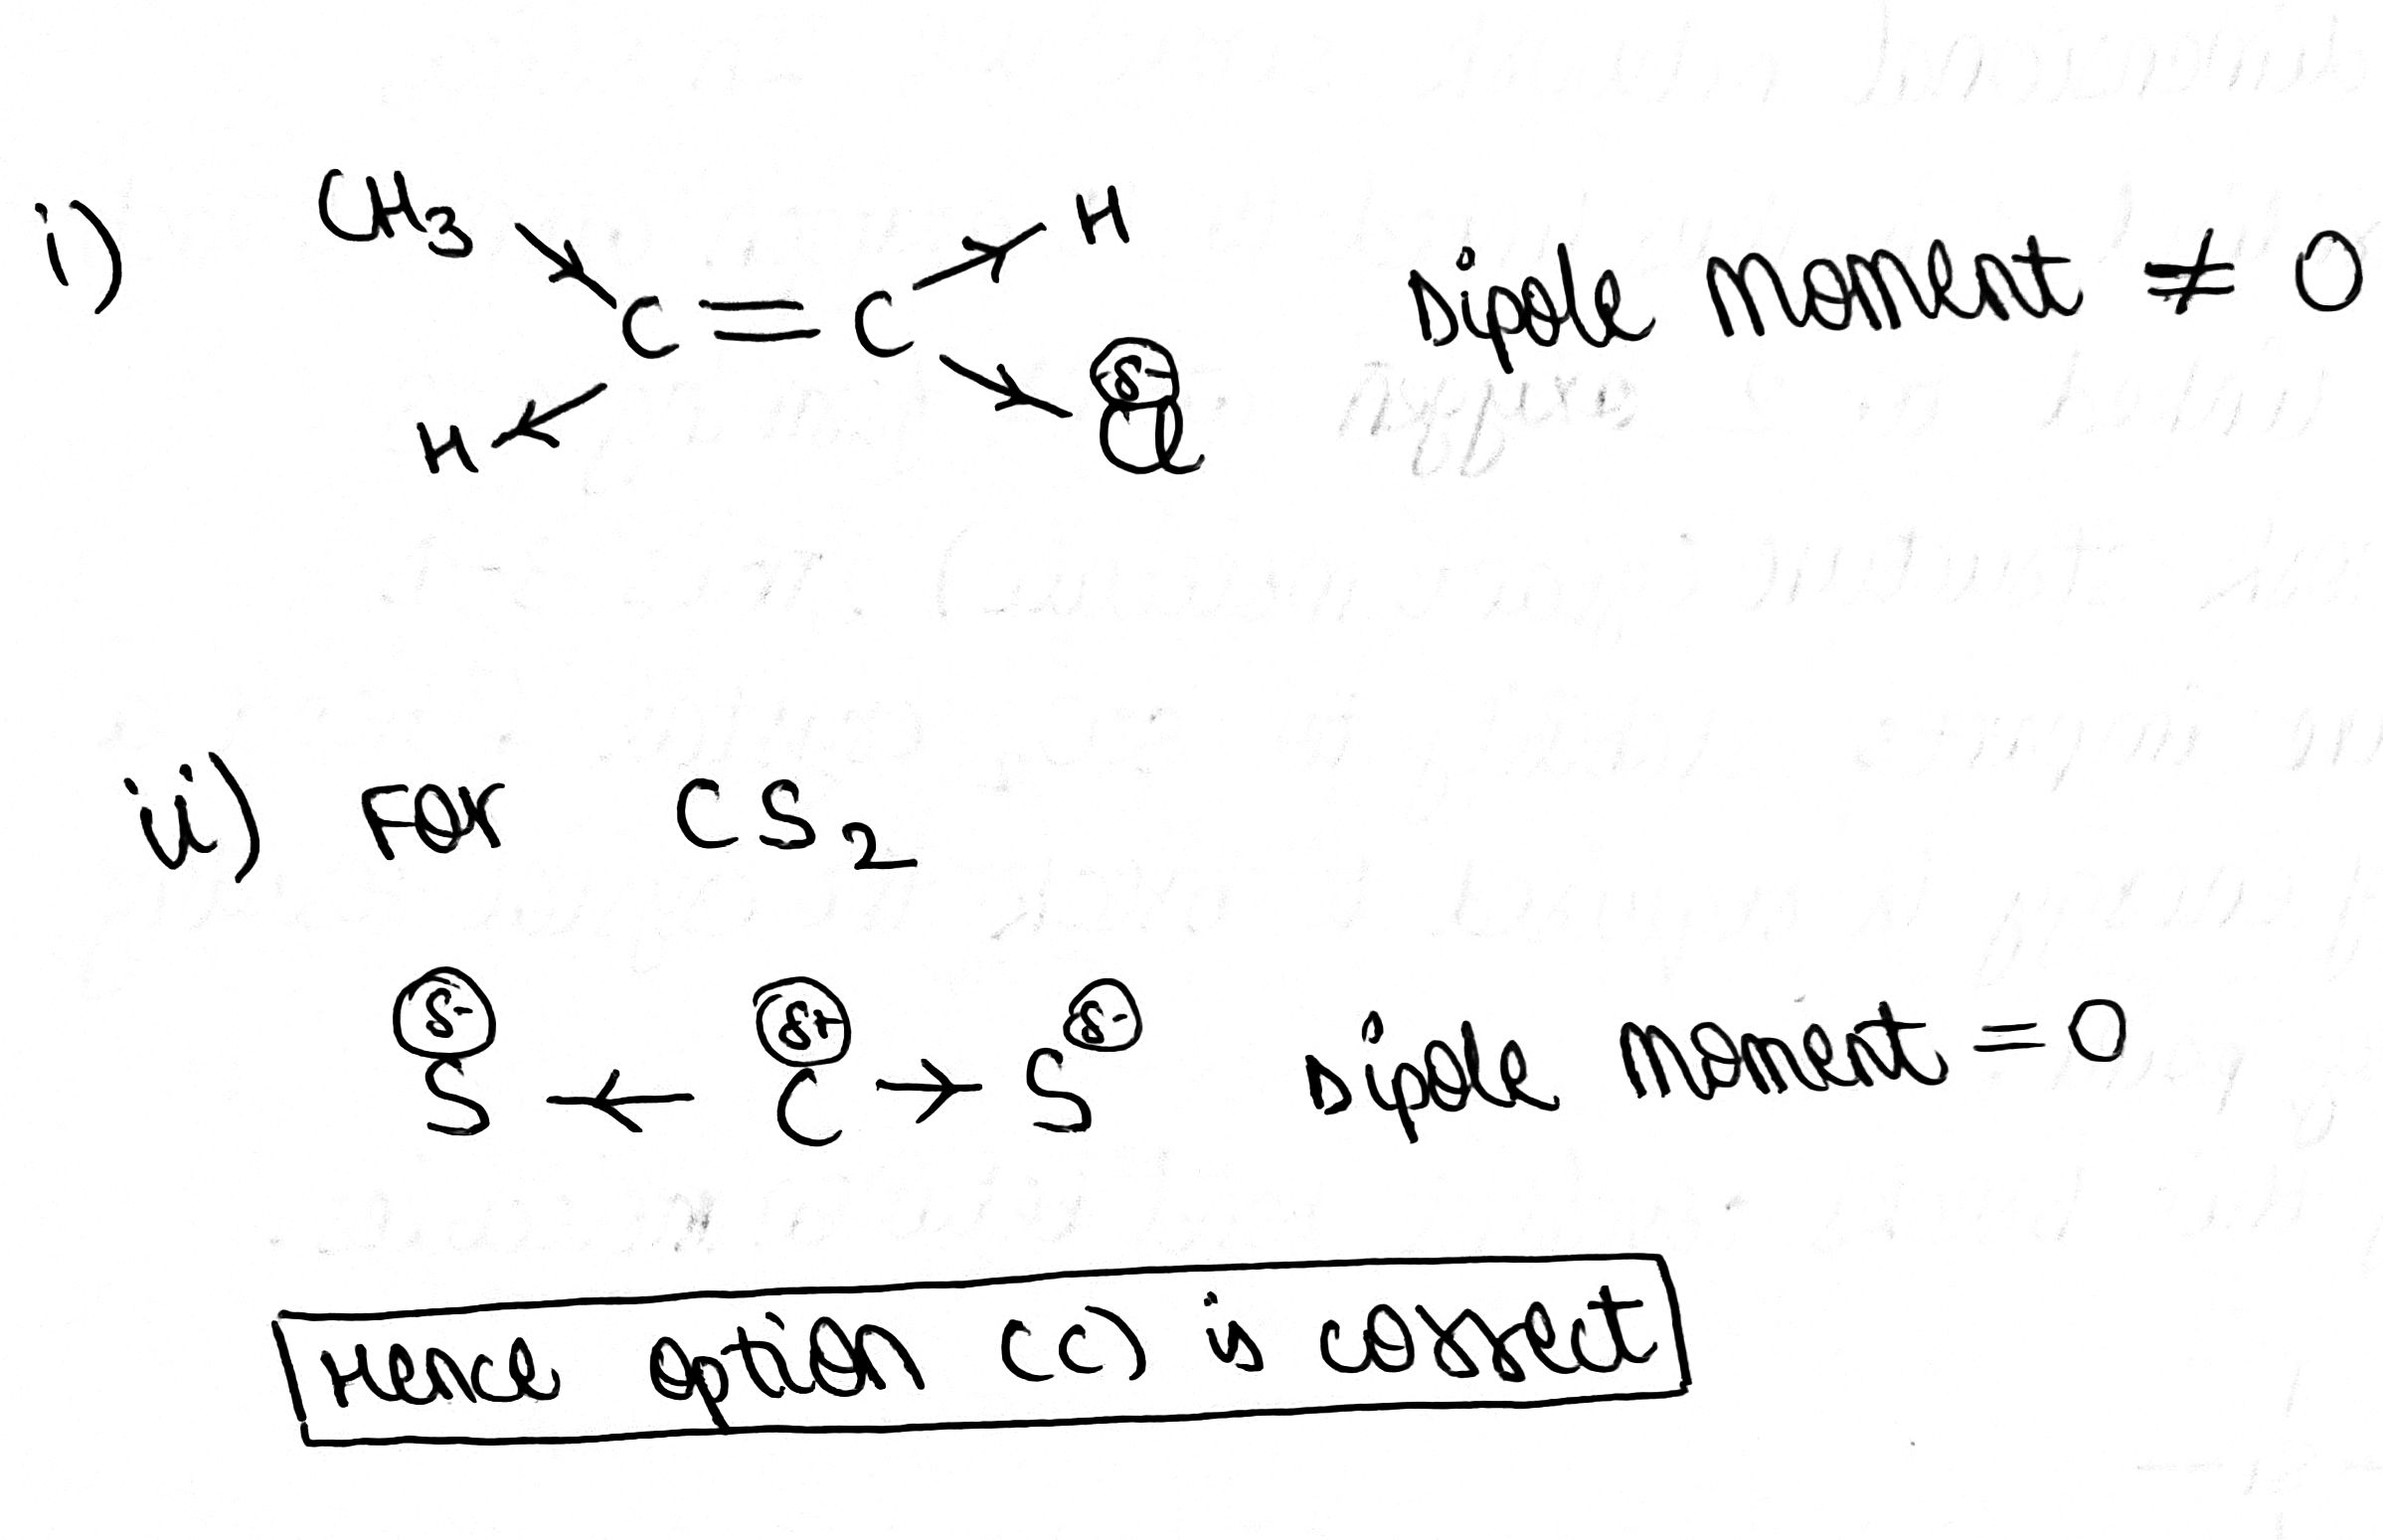 i) CH3 H
C = C Dipole Moment ≠ 0
δ-
H Cl
ii) For CS2
δ- δ+ δ-
S ← C → S Dipole Moment = 0
Hence option (c) is correct